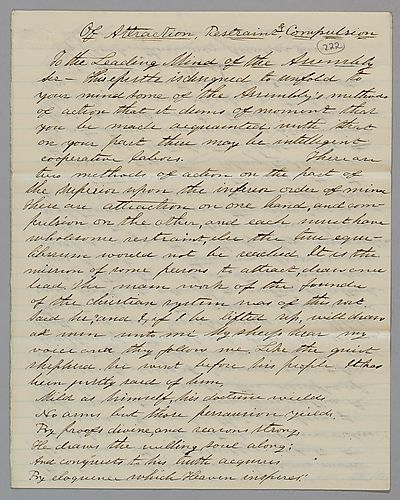 Of Attraction, Restraint & Compulsion
222
To the Leading Mind of the Assembly
Sir — This epistle is designed to unfold to
your mind some of the Assembly's methods
of action that it deems of moment that
you be made acquainted with that
on your part there may be intelligent
cooperative labors. There are
two methods of action on the part of
the superior upon the inferior order of mind
there are attraction on one hand, and com-
pulsion on the other, and each must have
wholesome restraint, else the true equi-
librium would not be reached. It is the
mission of some persons to attract, draw and
lead. The main work of the founder
of the christian system was of this sort.
Said he, "and I, if I be lifted up, will draw
all men unto me My sheep hear my
voice and they follow me. Like the quiet
shepherd he went before his people. It has
been justly said of him,
Mild as himself, his doctrine wields
No arms but those persuasion yields.
By proofs divine and reasons strong
He draws the willing soul along;
And conquests to his truth acquires
By eloquence which Heaven inspires.